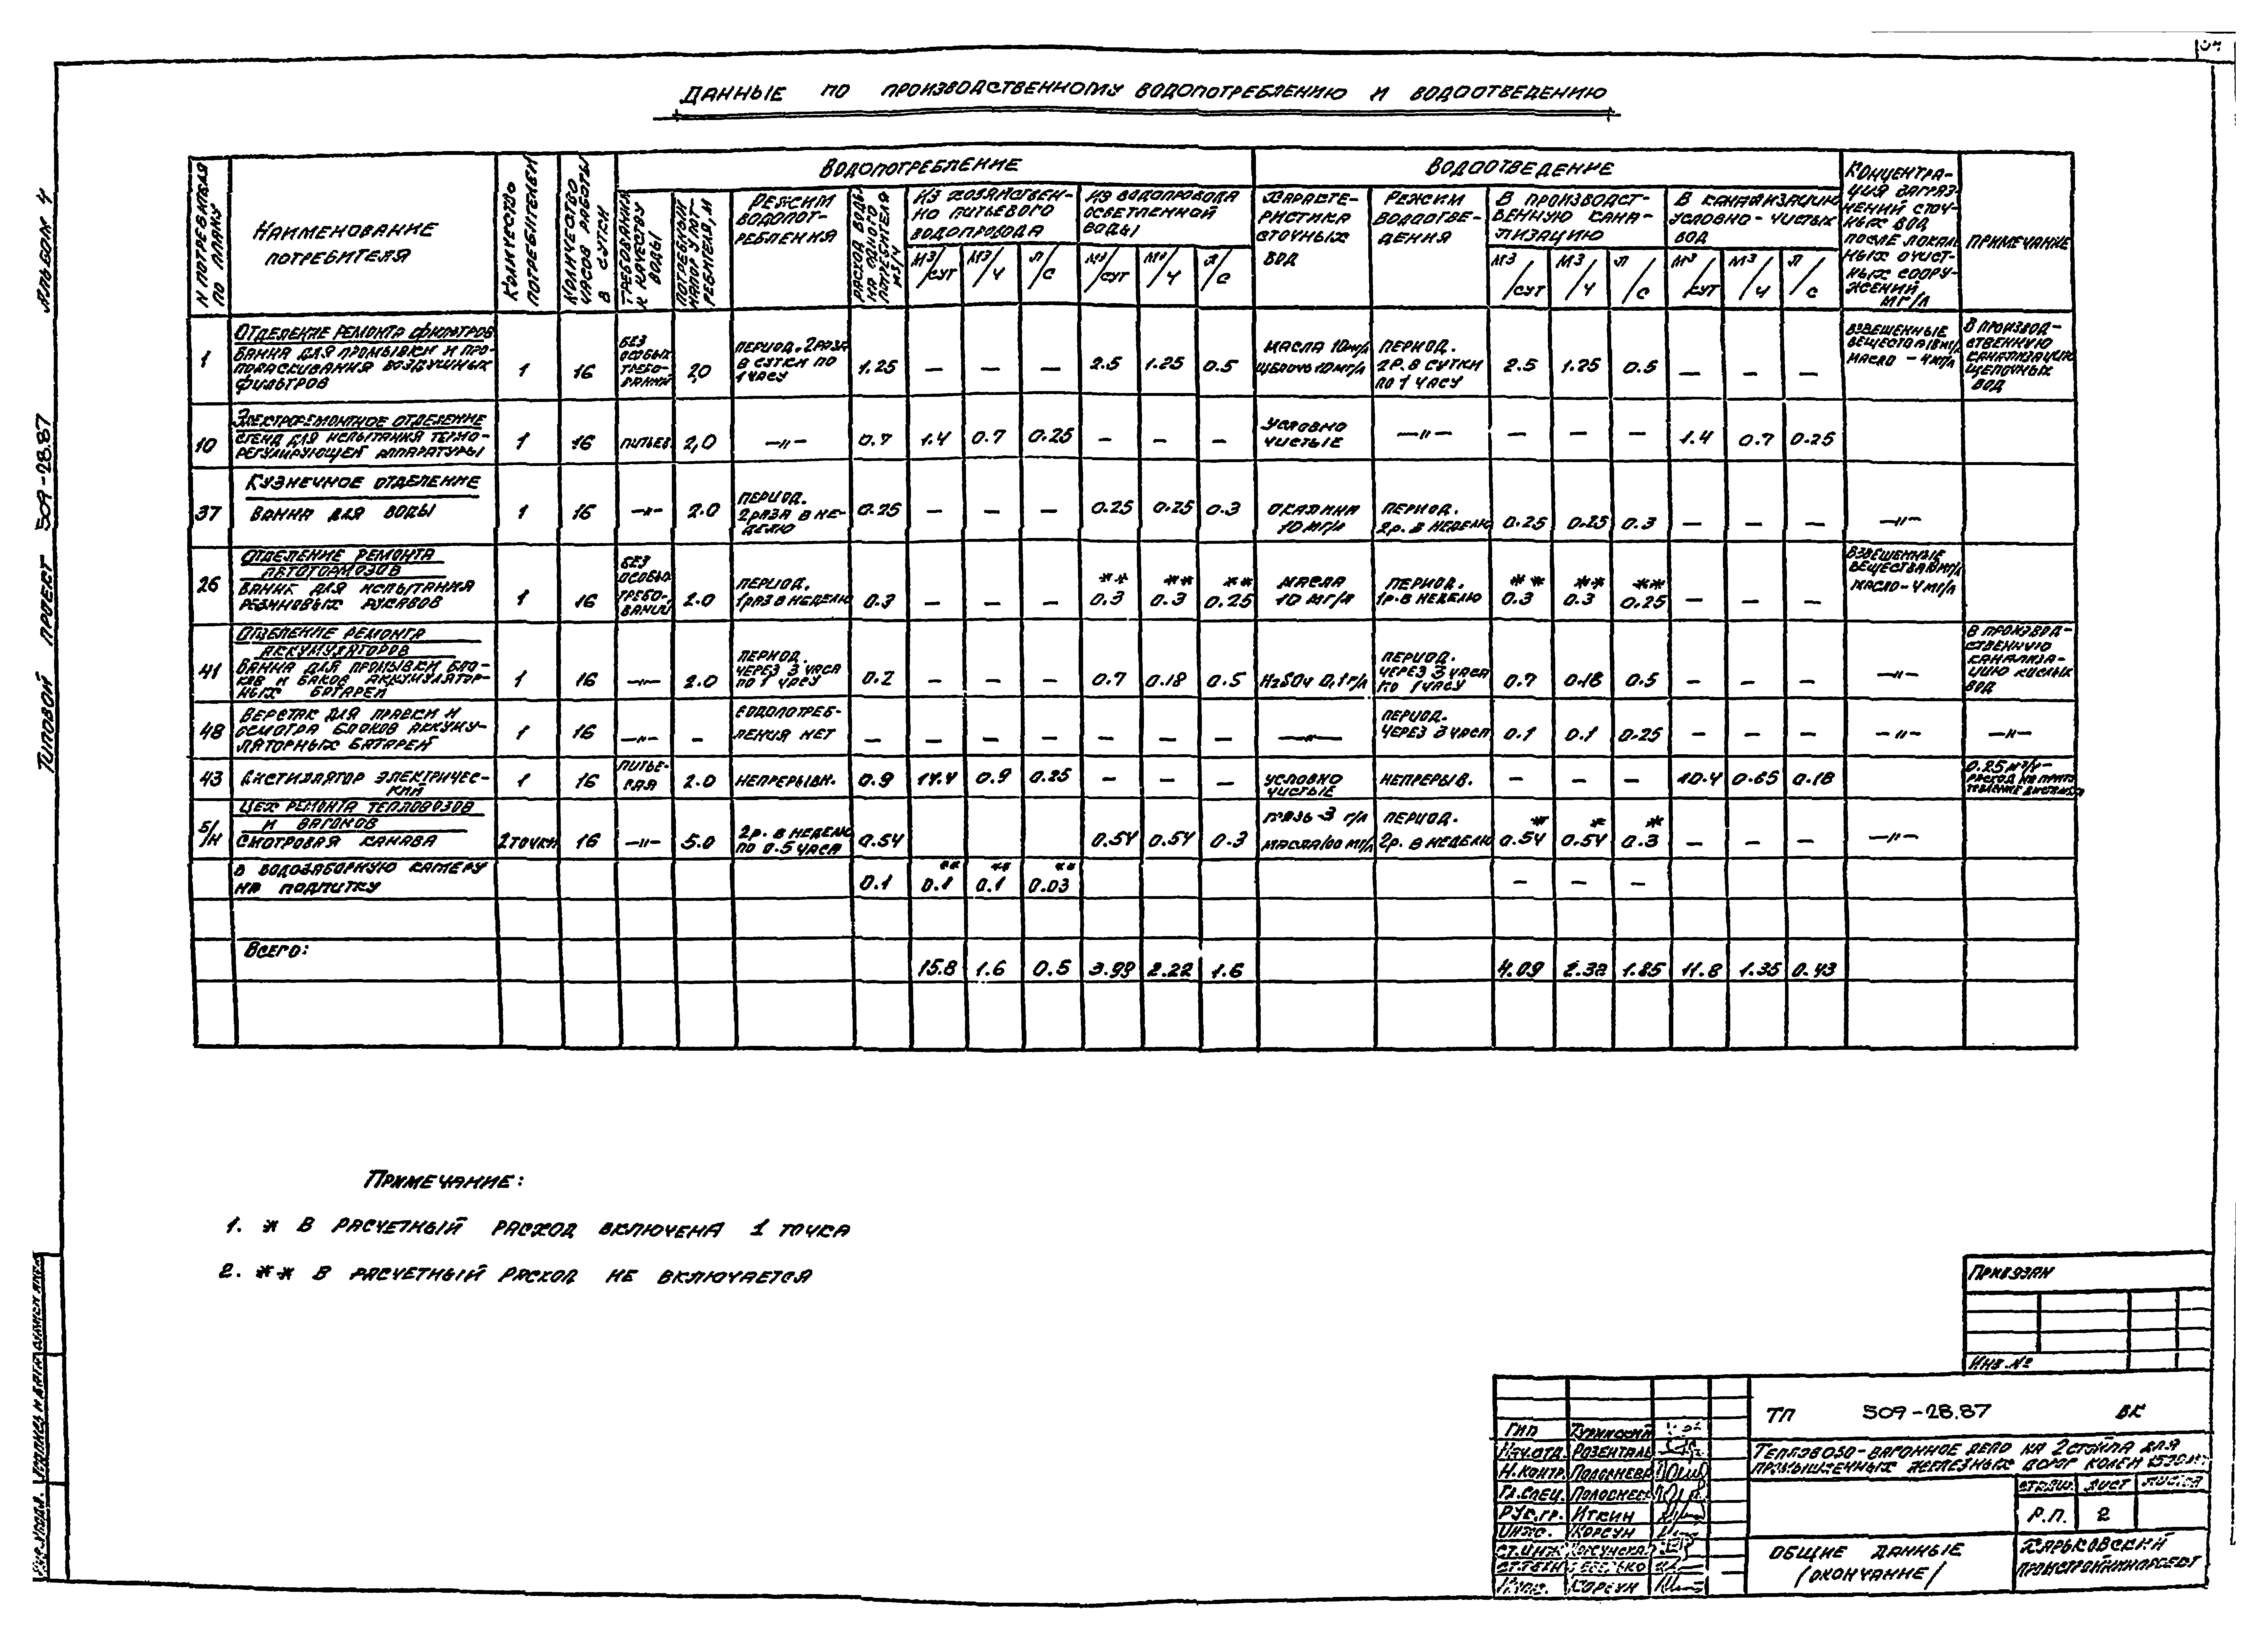 Данные по производственному водопотреблению и водоотведению
Альбом 4
Типовой проект 509-28.87
N потребителя по плану
Наименование потребителя
Количество потребителей
Количество часов работы в сутки
Водопотребление
Требования к качеству воды
Потребный напор у потребителя, м
Режим водопотребления
Расход воды на одного потребителя м3/ч
Из хозяйственно питьевого водопровода
м3/сут м3/ч л/с
Из водопровода осветленной воды
м3/сут м3/ч л/с
Водоотведение
Характеристика сточных вод
Режим водоотведения
В производственную канализацию
м3/сут м3/ч л/с
В канализацию условно-чистых вод
м3/сут м3/ч л/с
Концентрация загрязнений сточных вод после локальных очистных сооружений мг/л
Примечание
Отделение ремонта фильтров
1 Ванна для промывки и прополаскивания воздушных фильтров 1 16 Без особых требований 2,0 Период. 2 раза в сутки по 1 часу 1.25 — — — 2.5 1.25 0.5 Масла 10мг/л щелочь 10мг/л Период. 2р. в сутки по 1 часу 2.5 1.25 0.5 — — — Взвешенные вещества мг/л масло – 4мг/л В производственную канализацию щелочных вод
Электроремонтное отделение
10 Стенд для испытания терморегулирующей аппаратуры 1 16 питьев 2,0 —"— 0.7 1.4 0.7 0.25 — — — Условно чистые —"— — — — 1.4 0.7 0.25
Кузнечное отделение
37 Ванна для воды 1 16 —"— 2.0 Период. 2раза в неделю 0.25 — — — 0.25 0.25 0.3 Окалина 10 мг/л Период. 2р. в неделю 0.25 0.25 0.3 — — — —"—
Отделение ремонта автотормозов
26 Ванна для испытания резиновых рукавов 1 16 Без особых требований 2.0 Период. 1раз в неделю 0.3 — — — **0.3 **0.3 **0.25 Масла 10 мг/л Период. 1р. в неделю **0.3 **0.3 **0.25 — — — Взвешенные вещества мг/л масло – 4мг/л
Отделение ремонта аккумуляторов
41 Ванна для промывки блоков и баков аккумуляторных батарей 1 16 —"— 2.0 Период. через 3 часа по 1 часу 0.2 — — — 0.7 0.18 0.5 H2SO4 0,1г/л Период. через 3 часа по 1 часу 0.7 0.18 0.5 — — — —"— В производственную канализацию кислых вод
48 Верстак для правки и осмотра блоков аккумуляторных батарей 1 16 —"— — Водопотребления нет — — — — — — — —"— Период. через 3 часа 0.1 0.1 0.25 — — — —"— —"—
43 Дистиллятор электрический 1 16 питьевая 2.0 Непрерывн. 0.9 14.4 0.9 0.25 — — — Условно чистые Непрерыв. — — — 10.4 0.65 0.18 0.25 м3/ч – расход на приготовление дистиллята
Цех ремонта тепловозов и вагонов
б/н Смотровая канава 2точки 16 —"— 5.0 2р. в неделю по 0.5 часа 0.54 0.54 0.54 0.3 Грязь-3 г/л масла 100 мг/л Период. 2р. в неделю *0.54 *0.54 *0.3 — — — —"—
В водозаборную камеру на подпитку 0.1 **0.1 **0.1 **0.03 — — —
Всего: 15.8 1.6 0.5 3.99 2.22 1.6 4.09 2.32 1.85 11.8 1.35 0.43
Примечание:
1. * В расчетный расход включена 1 точка
2. ** В расчетный расход не включается
Привязан
Инв.№
ТП 509-28.87 ВК
Тепловозо-вагонное депо на 2 стойла для
промышленных железных дорог колеи
ГИП Туринский
Нач.отд. Розенталь
Н.контр.
Гл.спец.
Рук.гр. Иткин
Инж. Корсун
ст.инж.
Корсун
стадия лист листов
Р.П. 2
Общие данные
/окончание/
Харьковский
Промстройниипроект